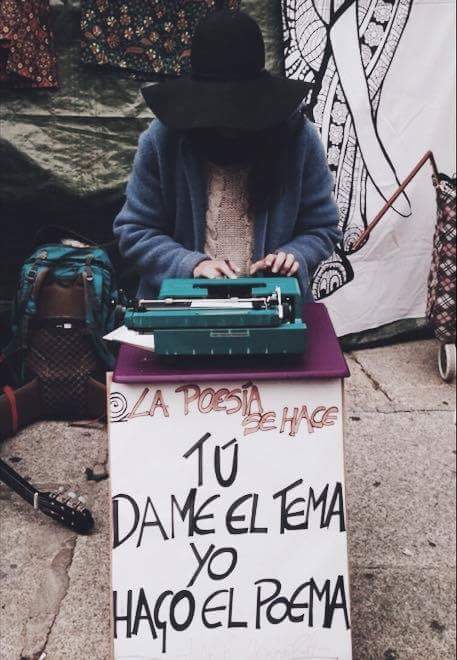 LA POESÍA
SE HACE
TÚ
DAME EL TEMA
YO
HAGO EL POEMA